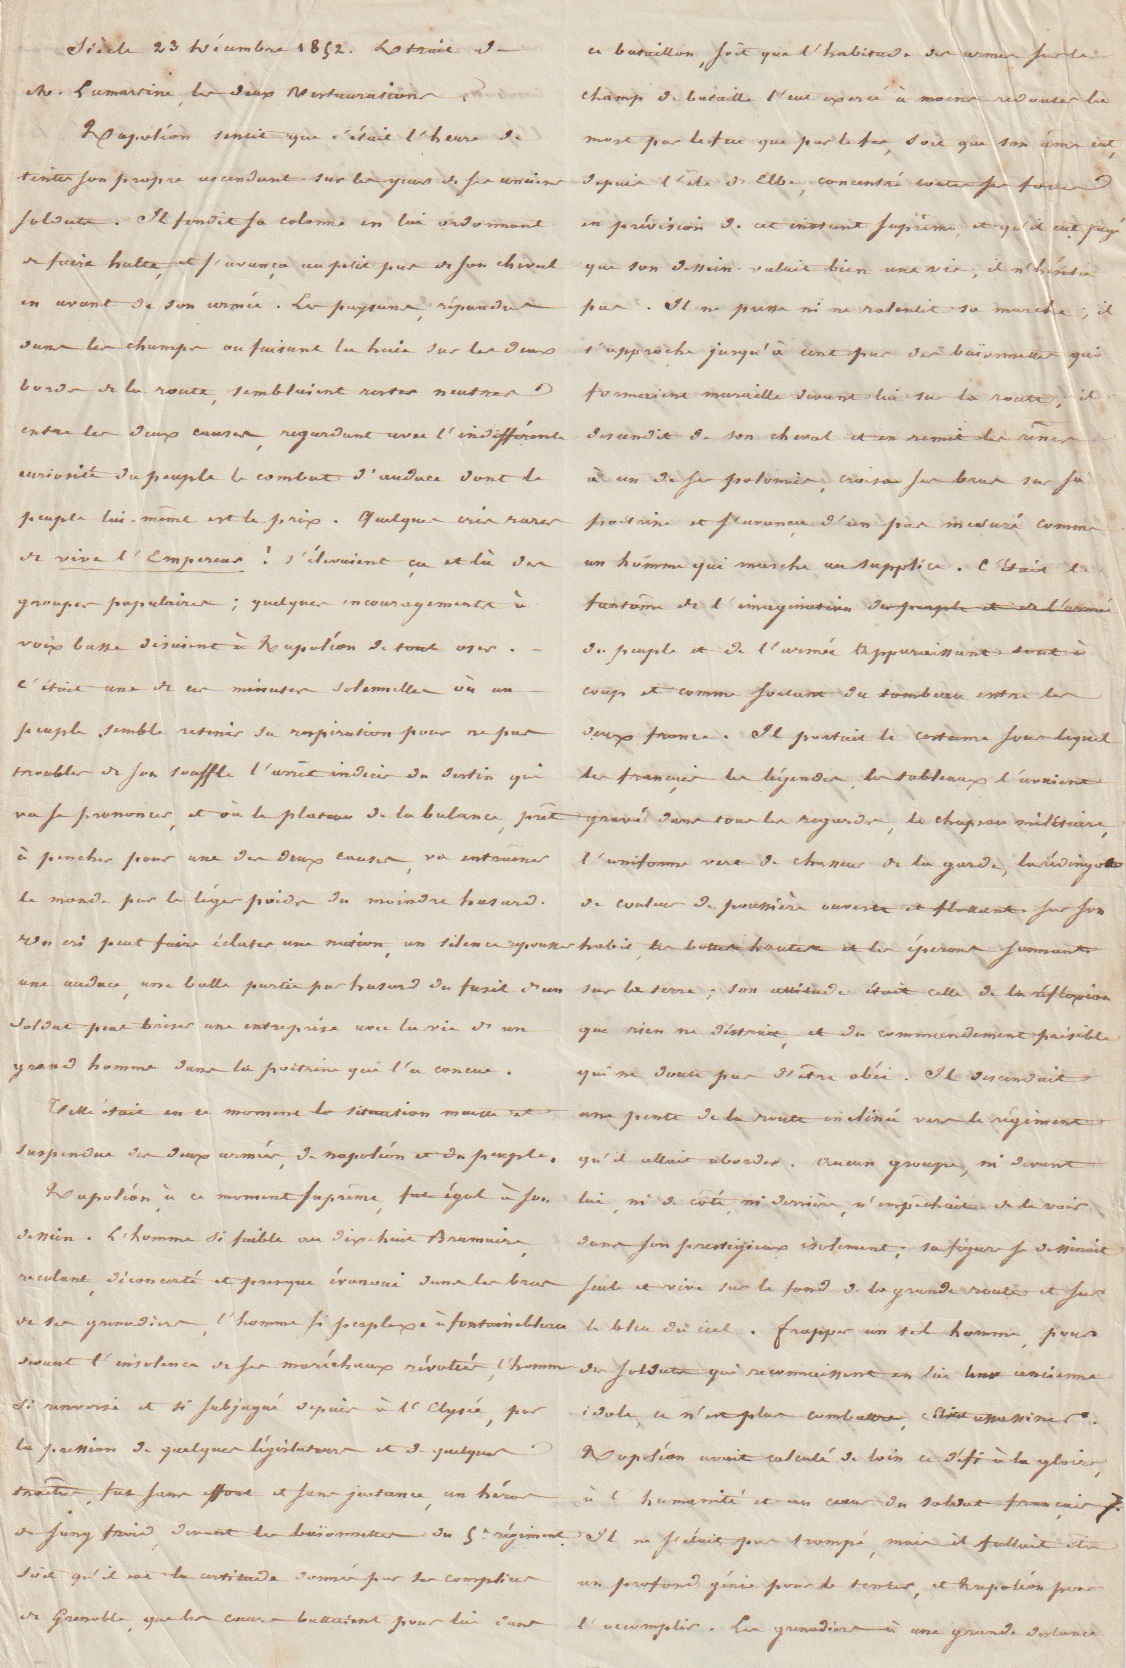 Siècle 23 Décembre 1852. Extrait de
M. Lamartine, les deux Restaurations
Napoléon sentit que c'était l'heure de
tenter son propre ascendant sur les yeux de ses anciens
soldats. Il fendit sa colonne en lui ordonnant
de faire halte, et s'avança au petit pas de son cheval
en avant de son armée. Les paysans, répandus
dans les champs ou faisant la haie sur les deux
bords de la route, semblaient rester neutres
entre les deux causes, regardant avec l'indifférente
curiosité du peuple le combat d'audace dont le
peuple lui-même est le prix. Quelques cris rares
de vive l'Empereur ! s'élevaient ça et là des
groupes populaires ; quelques encouragements à
voix basse disaient à Napoléon de tout oser. -
C'était une de ces minutes solennelles où un
peuple semble retenir sa respiration pour ne pas
troubler de son souffle l'arrêt indécis du destin qui
va se prononcer, et où le plateau de la balance, prêt
à pencher pour une des deux causes, va entraîner
le monde par le léger poids du moindre hasard.
Un cri peut faire éclater une nation, un silence repousser
une audace, une balle partie par hasard du fusil d'un
soldat peut briser une entreprise avec la vie de un
grand homme dans la poitrine qui l'a conçue.
Telle était en ce moment la situation muette et
suspendue des deux armées, de napoléon et du peuple.
Napoléon, à ce moment suprême, fut égal à son
dessein. L'homme si faible au dix-huit Brumaire,
reculant, déconcerté et presque évanoui dans les bras
de ses grenadiers, l'homme si perplexe à fontainebleau
devant l'insolence de ses maréchaux révoltés, l'homme
si renversé et si subjugué depuis à l'Elysée, par
la pression de quelques législateurs et de quelques
traîtres, fut sans effort et sans jactance, un héros
de sang froid, devant les baïonnettes du 5e régiment.
Soit qu'il eut la certitude donnée par ses complices
de Grenoble, que les coeurs battaient pour lui dans
ce bataillon, soit que l'habitude des armes sur le
champ de bataille l'eut exercé à moins redouter la
mort par le feu que par le fer, soit que son âme eut,
depuis l'île d'Elbe, concentré toutes ses forces
en prévision de cet instant suprême, et qu'il eut jugé
que son dessein valait bien une vie, il n'hésita
pas. Il ne presse ni ne ralentit sa marche ; il
s'approche jusqu'à cent pas des baïonnettes qui
formaient muraille devant lui sur la route, il
descendit de son cheval et en remit les rênes
à un de ses polonais, croisa ses bras sur sa
poitrine et s'avança d'un pas mesuré comme
un homme qui marche au supplice. C'était le
fantôme de l'imagination du peuple et de l'armée
du peuple et de l'armée apparaissant tout à
coup et comme sortant du tombeau entre les
deux france. Il portait le costume sous lequel
les français, les légendes, les tableaux l'avaient
gravé dans tous les regards, le chapeau militaire,
l'uniforme vert de chasseur de la garde, la redingote
de couleur de poussière ouverte et flottante sur son
habit, les bottes hautes et les éperons sonnants
sur la terre ; son attitude était celle de la réflexion
que rien ne distrait, et du commandement paisible
qui ne doute pas d'être obéi. Il descendait
une pente de la route inclinée vers le régiment
qu'il allait aborder. Aucun groupe, ni devant
lui, ni de côté, ni derrière, n'empêchait de le voir
dans son prestigieux isolement ; sa figure se dessinait
seule et vive sur le fond de la grande route et sur
le bleu du ciel. frapper un tel homme, pour
des soldats qui reconnaissent en lui leur ancienne
idole, ce n'est plus combattre, c'était assassiner.
Napoléon avait calculé de loin ce défi à la gloire,
à l'humanité et au cœur du soldat français.
Il ne s'était pas trompé, mais il fallait être
un profond génie pour le tenter, et Napoléon pour
l'accomplir. Les grenadiers à une grande distance